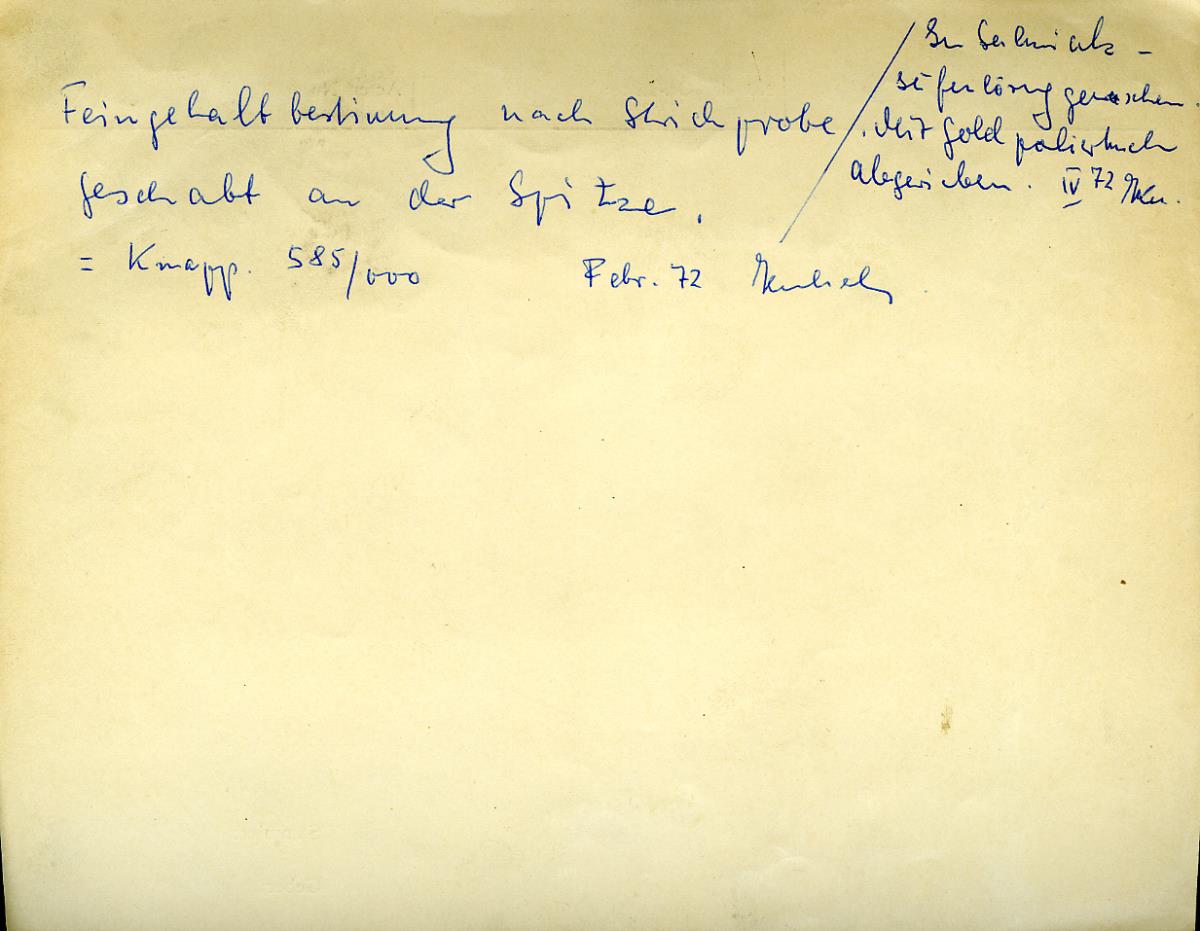 Feingehaltbestimmung nach Strichprobe.
geschabt an der Spitze.
= Knapp. 585/000 Febr. 72
In Salmiak-
seifenlösung gewaschen.
Mit Goldpoliertuch
abgerieben. IV 72